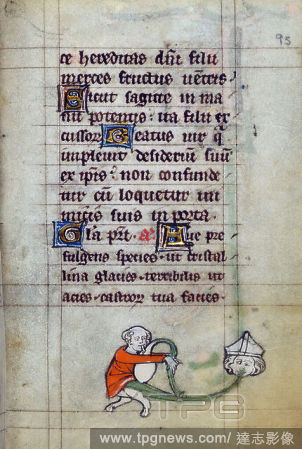 95
ce hereditas dnı filii
merces fructus uentris
Sicut sagite in ma
nu potentis: ita filii ex
cussor. Beatus uir q
impleuit desideriu suu
ex ipsis: non confunde
tur cu loquetur ini
micis suis in porta.
Gla prı. a. Aue pre
fulgens species. ut cristal
lina glacies. terribilis ut
acies. castror tua facies.
TPG
www.tpgnews.com/達志影像